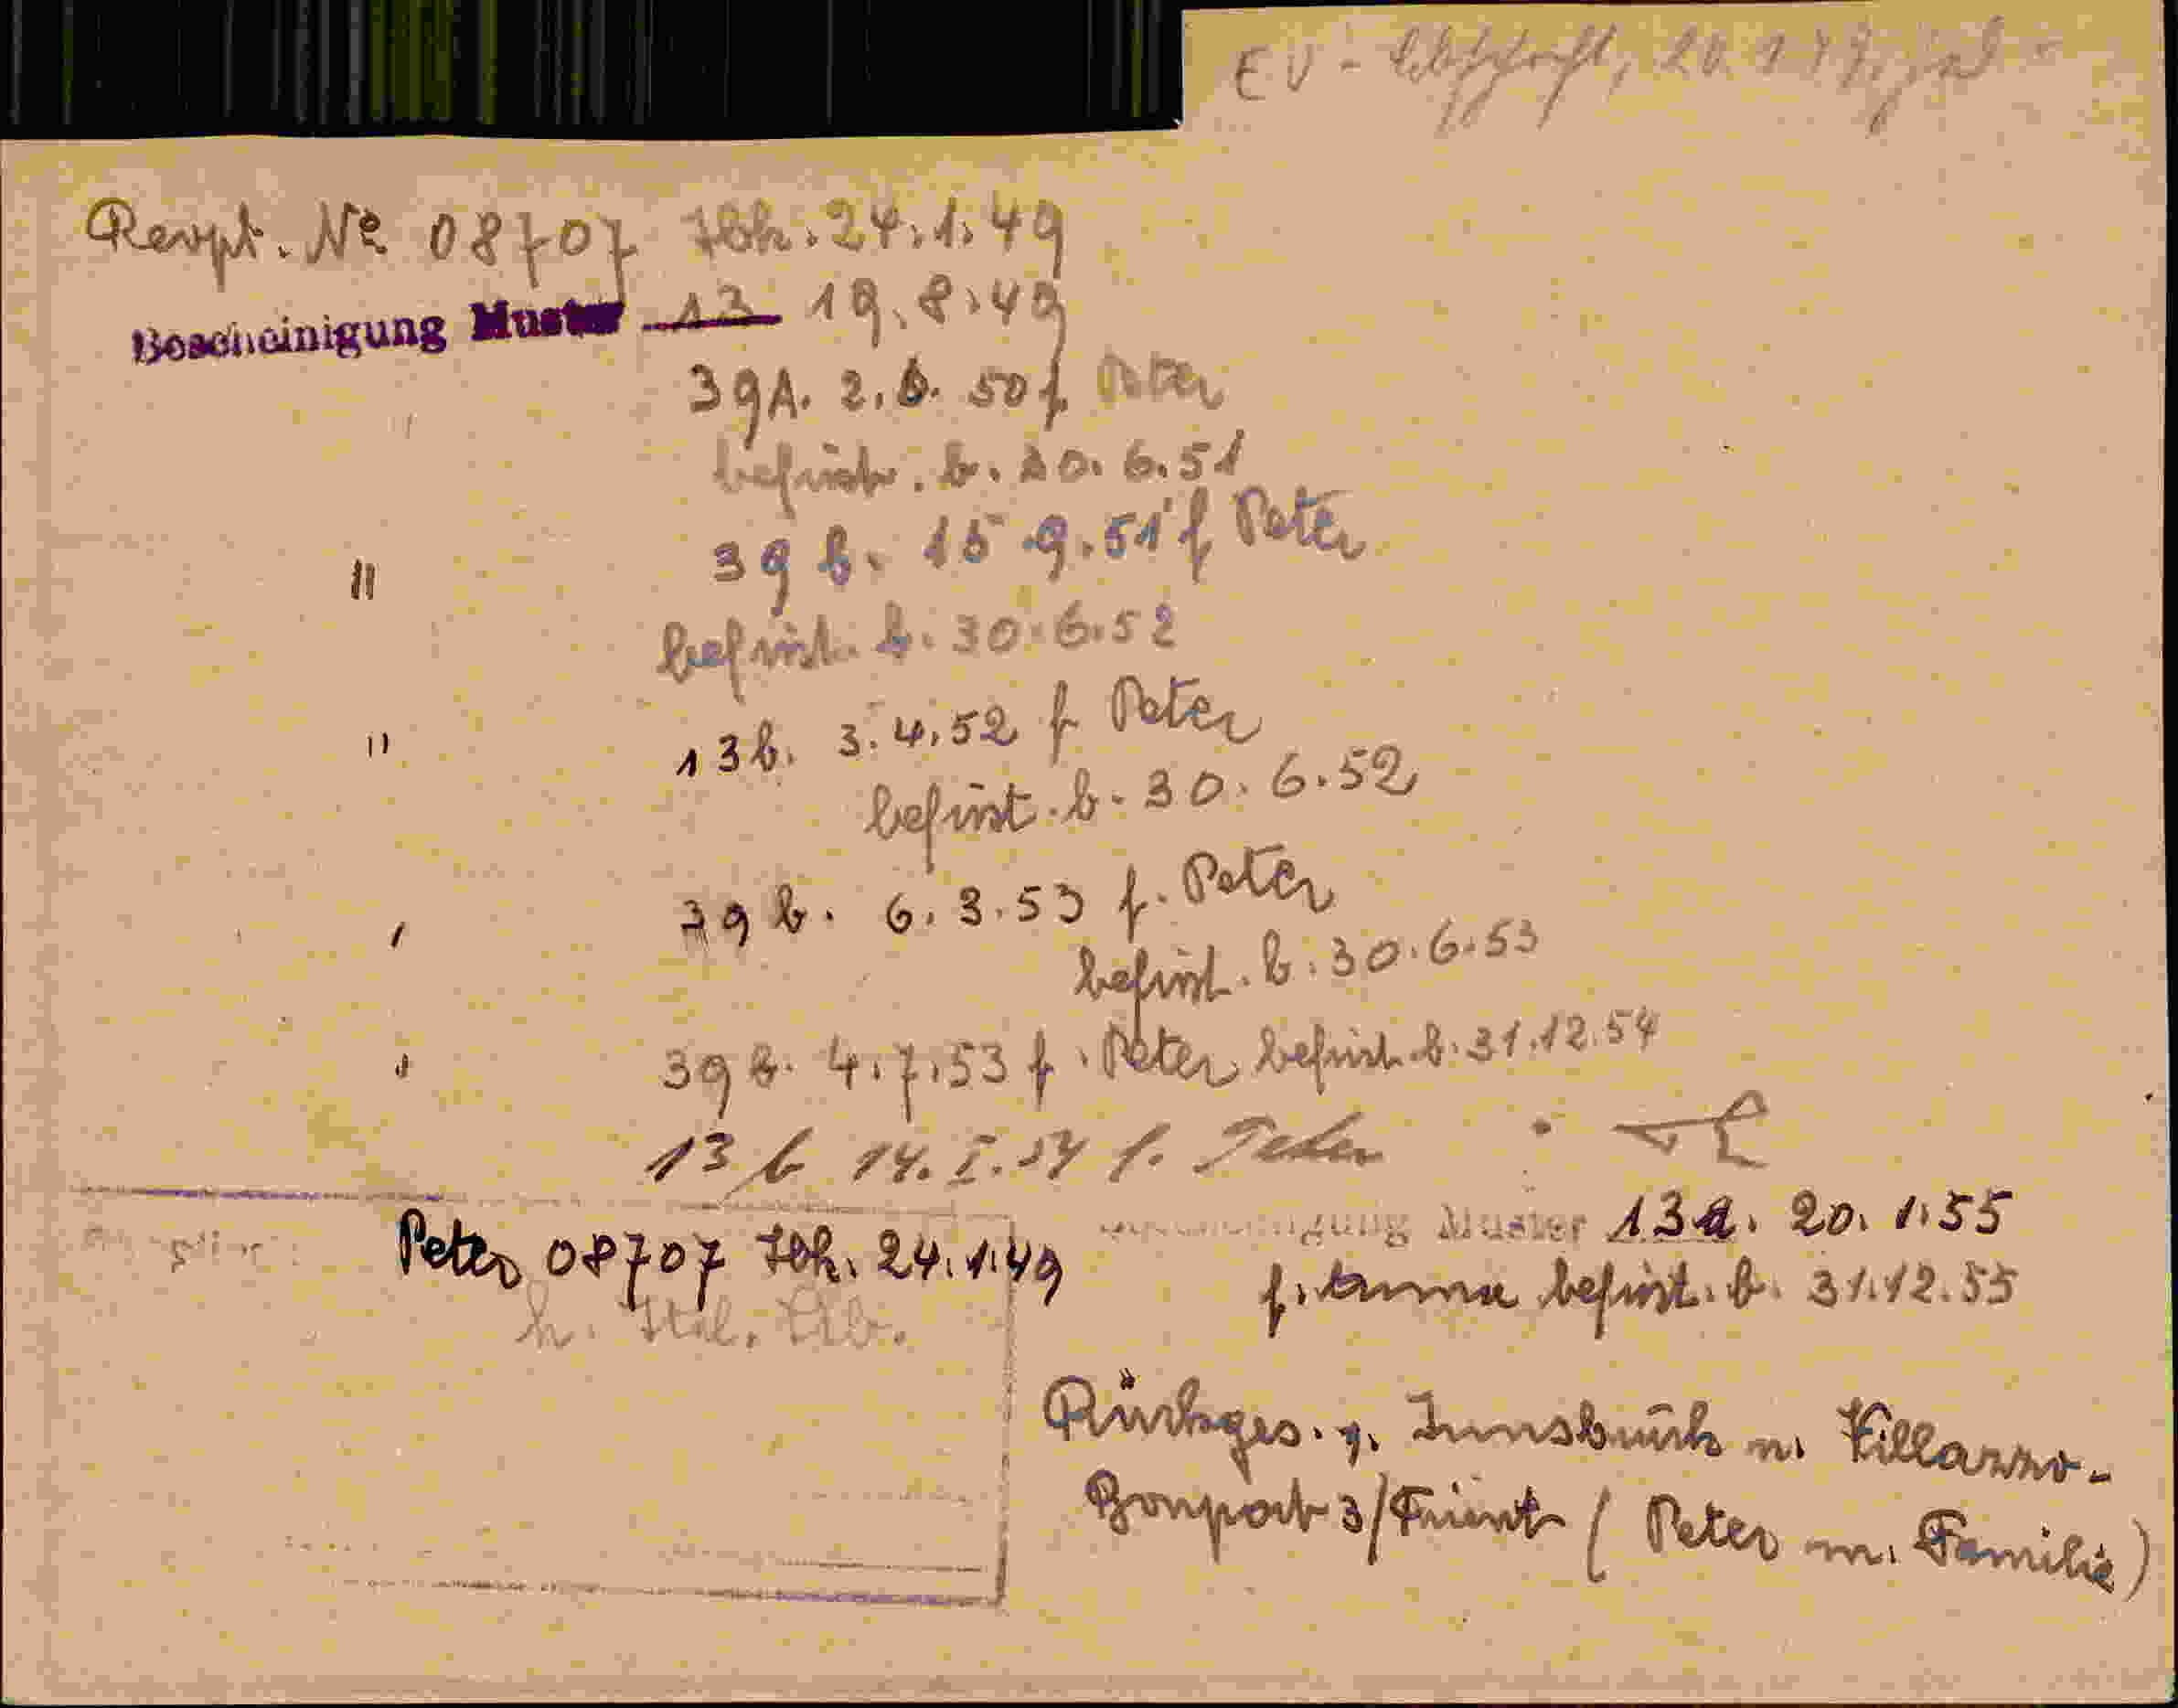 EV - 20.1.49
Rept. No 08707 Ibk. 24.1.49
Bescheinigung Muster 13 19.8.49
39A. 2.6. 50 f. Peter
befrist. b. 30. 6. 51
" 39 b. 15.9.51 f Peter
befrist. b. 30.6.52
" 13b. 3.4.52 f Peter
befrist. b. 30.6.52
39 b. 6.3.53 f. Peter
befrist. b. 30.6.53
39 b. 4.7.53 f. Peter befrist. b. 31.12.54
13 b 14.I.54 f. Peter
Peter 08707 Ibk. 24.1.49
Muster 13a. 20.1.55
f. befrist. b. 31.12.55
Rückges. Innsbruck n. Villazzo-
3/Trient (Peter m. Familie)